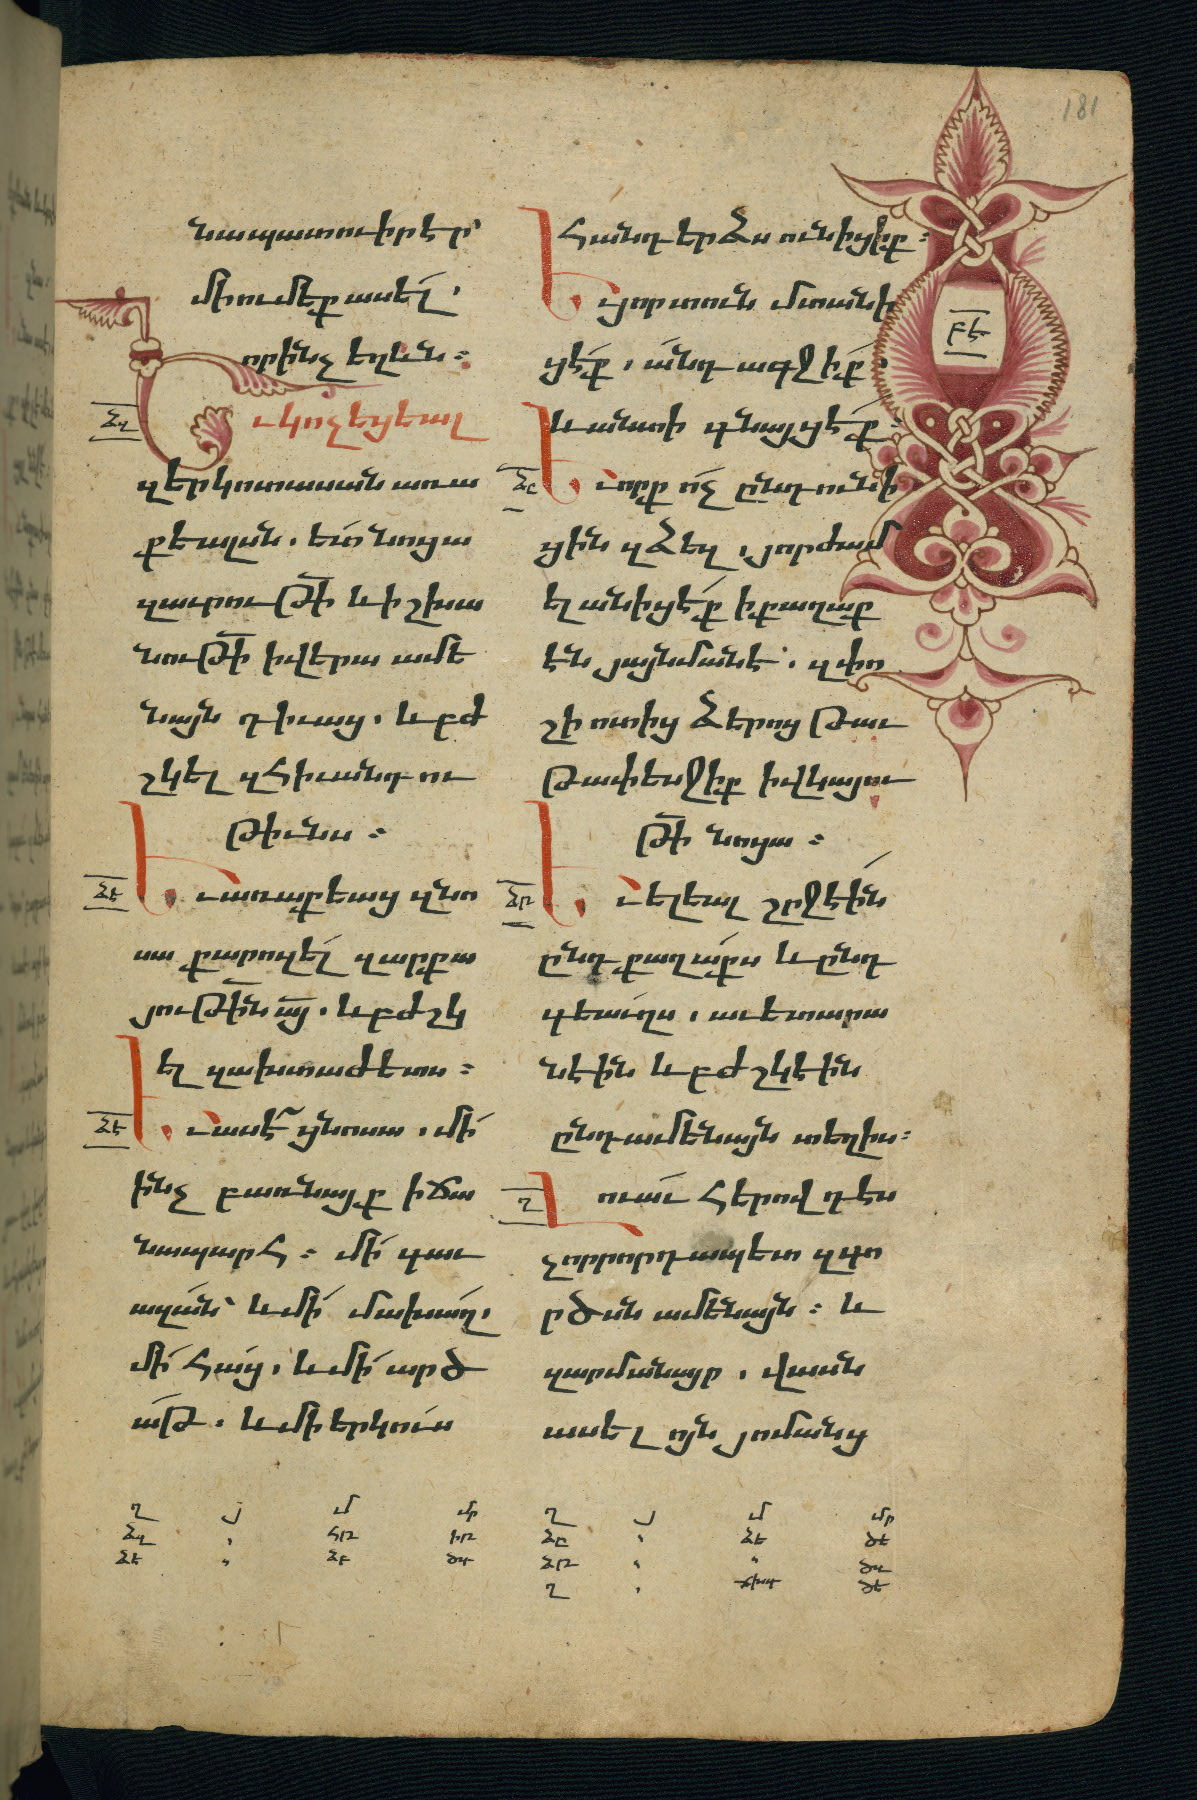 181
նապատուիրէր՝
միումեք ասել.
որինչ եղևն։
Եւ կոչեցեալ
զերկոտասան առա
քեալսն. ետ նոցա
զաւրութի և իշխա
նութի ի վերա ամե
նայն դիւաց. և բժ
շկել զհիւանդու
թիւնս։
Եւ առաքեաց զնո
սա քարոզել զարքա
յութիւն այ. և բժշկ
ել զախտաժետս։
Եւ ասէ ցնոսա. մի
ինչ բառնայք ի ճա
նապարհ։ մի գաւ
ազան՝ և մի մախաղ.
մի հաց. և մի արծ
աթ. և մի երկուս
հանդերձս ունիցիք։
Եւ յոր տուն մտանի
ցէք. անդ ագջիք.
և անտի գնայցէք։
Եւ որք ոչ ընդունի
ցին զձեզ. յորժամ
ելանիցէք ի քաղաք
էն յայնմանէ. զփո
շի ոտից ձերոց թաւ
թափեսջիք ի վկայու
թի նոցա։
Եւ ելեալ շրջէին
ընդ քաղաքս և ընդ
գեաւղս. աւետարա
նէին և բժշկէին
ընդ ամենայն տեղիս։
Լուաւ հերովդէս
չորրորդապետ զգո
րծսն ամենայն։ և
զարմանայր. վասն
ասել ոյն յոմանց
բե
ձզ
ձէ
ձը
ձթ
ղ
ղ յ մ մր
ղ յ մ մր